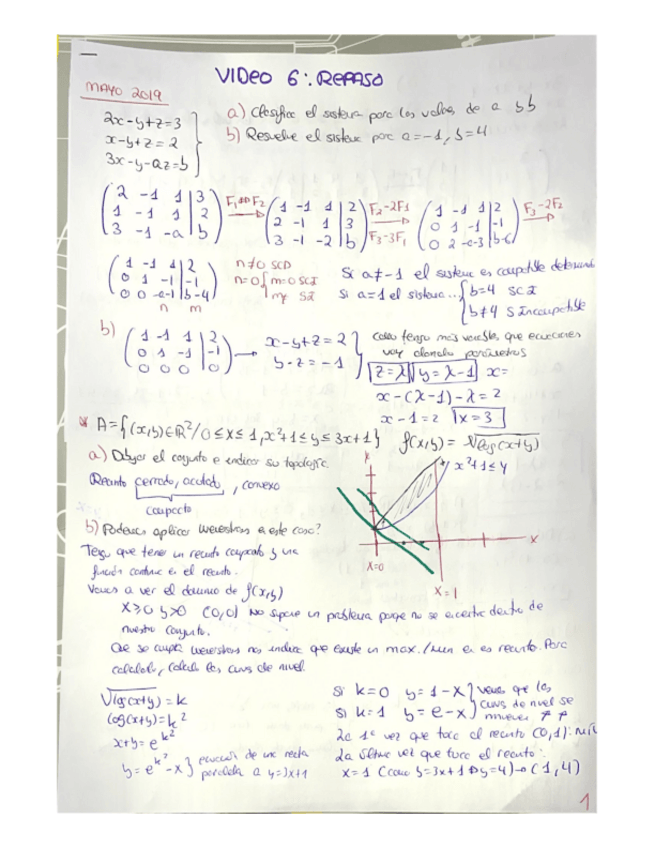 VIDEO 6: REPASO
MAYO 2019
2x-y+z=3
x-y+z=2
3x-y-az=b
a) Clasifica el sistema para los valores de a y b
b) Resuelve el sistema para a=-1, b=4
2 -1 1 | 3
1 -1 1 | 2
3 -1 -a | b
F1⇔F2
1 -1 1 | 2
2 -1 1 | 3
3 -1 -2 | b
F2-2F1
F3-3F1
1 -1 1 | 2
0 1 -1 | -1
0 2 -a-3 | b-6
F3-2F2
1 -1 1 | 2
0 1 -1 | -1
0 0 -a-1 | b-4
n m
n≠0 SCD
n=0 { m=0 SCI
m≠ SI
Si a≠-1 el sistema es compatible determinado
Si a=1 el sistema... { b=4 SCI
b≠4 S Incompatible
b)
1 -1 1 | 2
0 1 -1 | -1
0 0 0 | 0
→ x-y+z=2
y-z=-1
como tengo más variables que ecuaciones
voy dando parámetros
z=λ y=λ-1 x=
x-(λ-1)-λ=2
x-1=2 x=3
A={(x,y)∈ℝ²/0≤x≤1, x²+1≤y≤3x+1} f(x,y)=√log(x+y)
a) Dibujar el conjunto e indicar su topología
x²+1≤y
Recinto cerrado, acotado, convexo
compacto
b) Podemos aplicar weierstrass a este caso?
x
x=0
x=1
Tengo que tener un recinto compacto y una
función continua en el recinto.
Vamos a ver el dominio de f(x,y)
x≥0 y>0 (0,0) No supone un problema porque no se encuentra dentro de
nuestro conjunto.
Que se cumpla weierstrass nos indica que existe un max./min en es recinto. Para
calcularlo, calculo las curvas de nivel.
√log(x+y)=k
log(x+y)=k²
x+y=e^k²
y=e^k²-x } ecuación de una recta
paralela a y=3x+1
Si k=0 y=1-x
Si k=1 y=e-x
vemos que las
curvas de nivel se
mueven ↗↗
La 1ª vez que toca el recinto (0,1): mín
La última vez que toca el recinto:
x=1 (como y=3x+1⇒y=4)→(1,4)
1